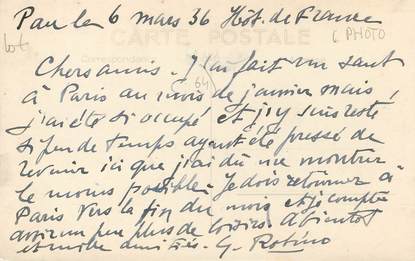 Pau le 6 mars 36 Hôt. de France
lot ( PHOTO
CARTE POSTALE
Correspondance
Chers amis. J'ai fait un saut
(64)
à Paris au mois de janvier mais
j'ai été si occupé et j'y suis resté
si peu de temps ayant été pressé de
revenir ici que j'ai dû me montrer
le moins possible. Je dois retourner à
Paris vers la fin du mois et je compte
avoir un peu plus de loisirs. A bientôt
et mille amitiés. G.